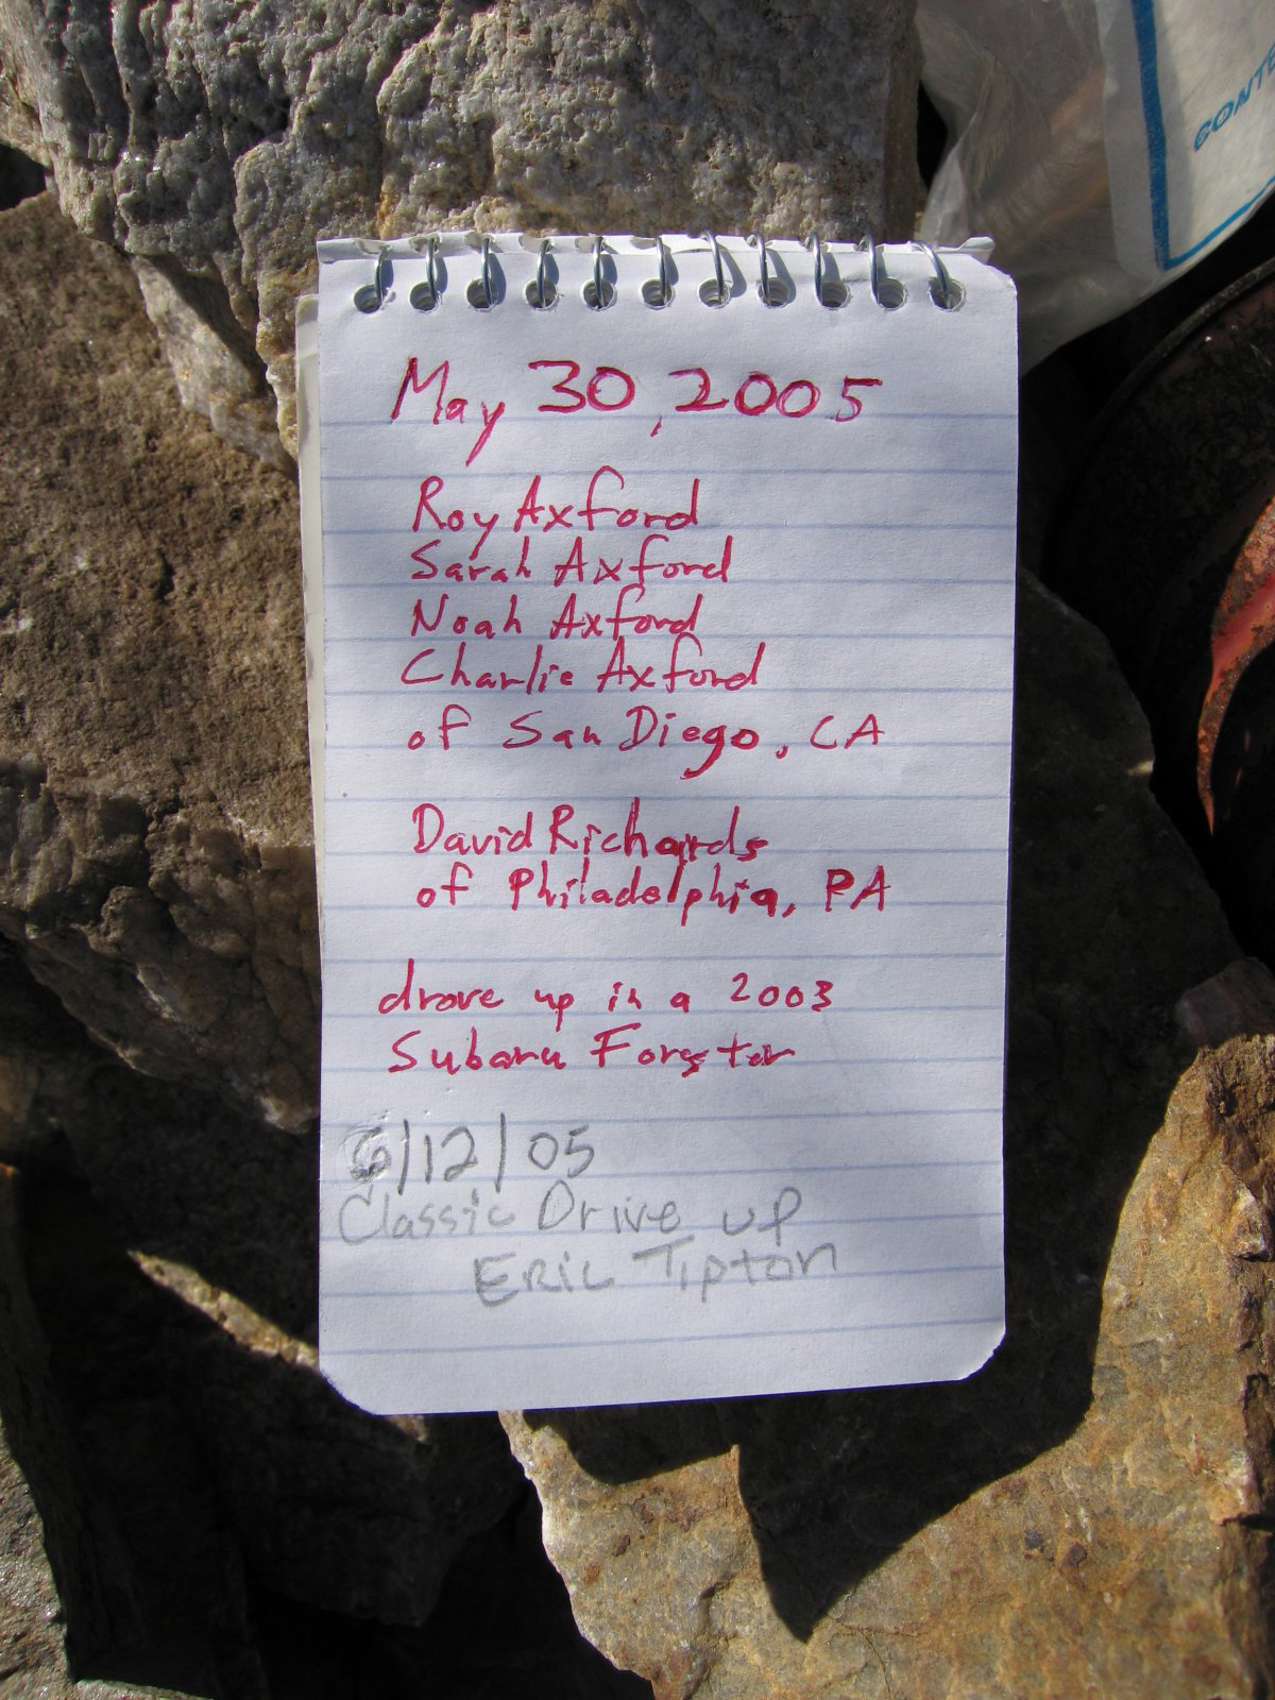 May 30, 2005
Roy Axford
Sarah Axford
Noah Axford
Charlie Axford
of San Diego, CA
David Richards
of Philadelphia, PA
drove up in a 2003
Subaru Forester
6/12/05
Classic Drive up
Eric Tipton